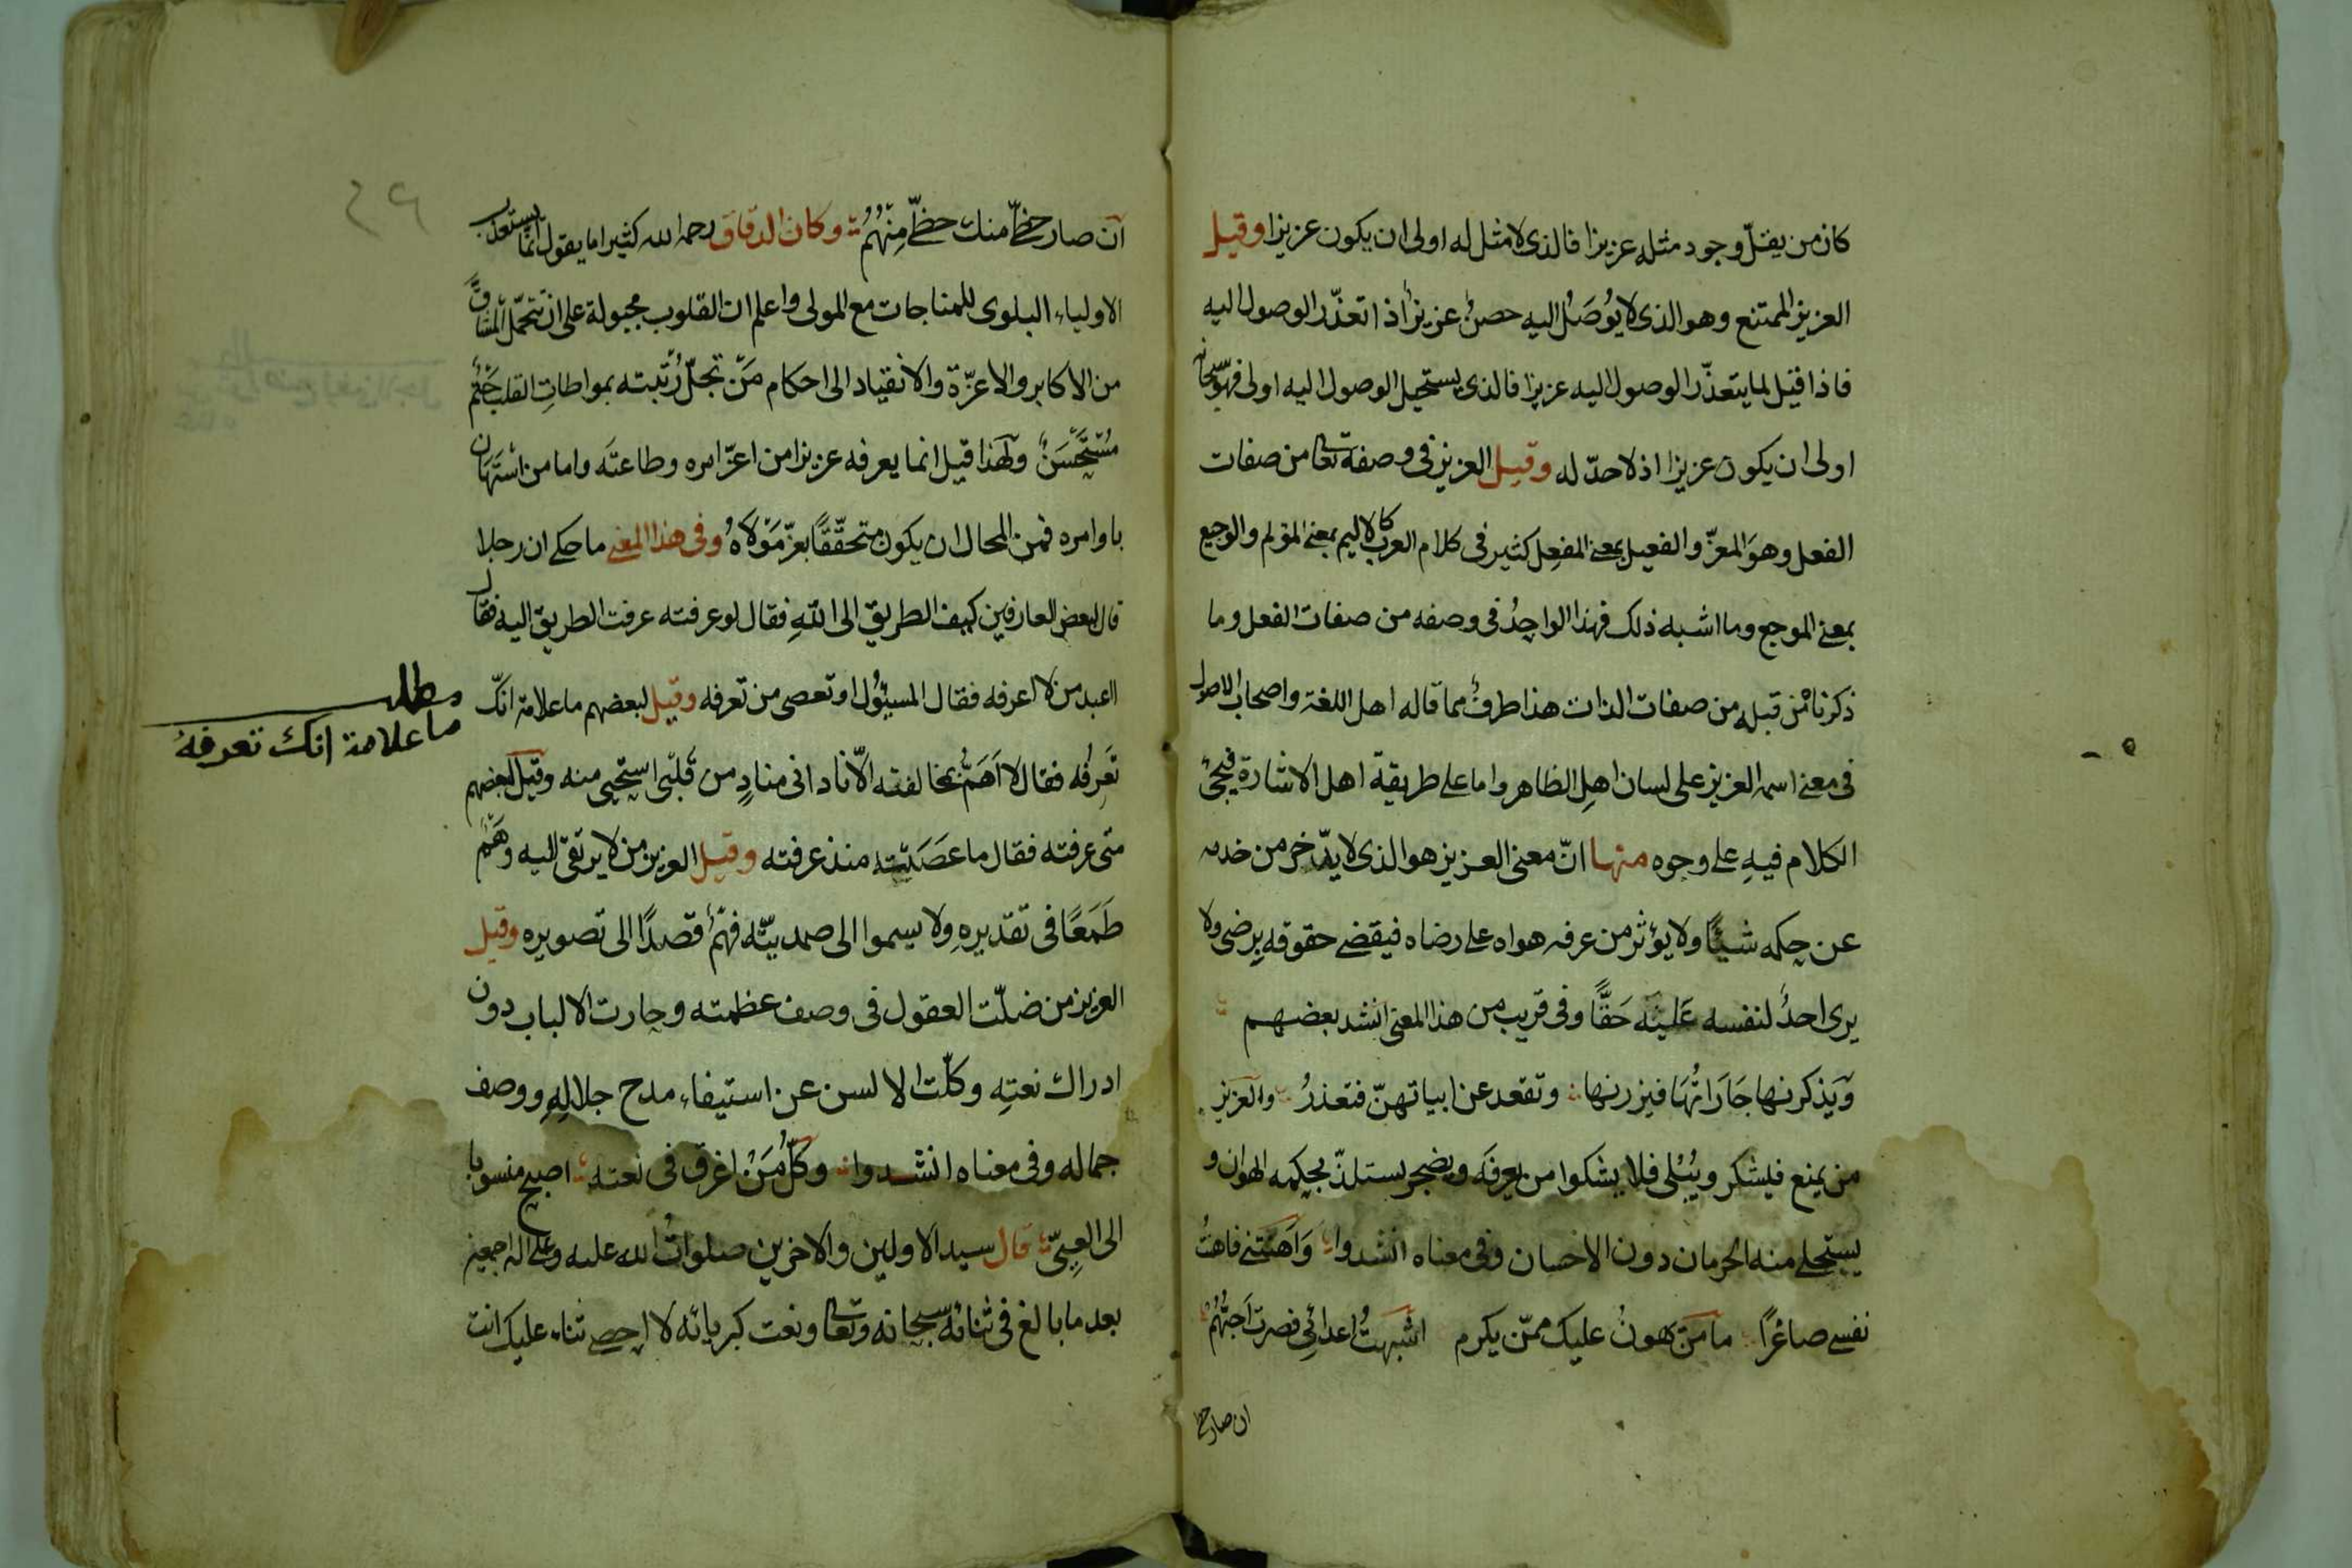 كان من يقلّ وجود مثله عزيزا فالذى لا مثل له اولى ان يكون عزيزا وقيل
العزيز الممتنع وهو الذى لا يُوصَلُ اليه حصنٌ عزيزٌ اذا تعذّر الوصول اليه
فاذا قيل لما يتعذّر الوصول اليه عزيزا فالذى يستحيل الوصول اليه اولى فهو سبحانه
اولى ان يكون عزيزا اذ لا حدّ له وقيل العزيز فى وصفه تعا من صفات
الفعل وهوَ المعزّ والفعيل بمعنى المفعِل كثير فى كلام العرب كالاليم بمعنى المؤلم والوجيع
بمعنى الموجع وما اشبه ذلك فهذا الواحدُ فى وصفه من صفات الفعل وما
ذكرناه من قبله من صفات الذات هذا طرفٌ مما قاله اهل اللغة واصحاب الاصول
فى معنى اسمه العزيز على لسان اهلِ الظاهر واما على طريقة اهل الاشارة فيجئُ
الكلام فيهِ على وجوه منها انّ معنى العزيز هو الذى لا يدّخر من خدمه
عن حكمه شيئًا ولا يؤثر من عرفه هواه على رضاه فيقضى حقوقه برضى ولا
يرى احدٌ لنفسه عَلَيْه حَقًّا وفى قريب من هذا المعنى انشد بعضهم
وَيَذكرنها جَارَاتُهَا فيزرنها وتقعد عن ابياتهنّ فتعذرُ والعزيز
من يمنع فيشكر ويُبْلى فلا يشكوا من يعرفَه ويضجر يستلذّ بحكمه الهوان و
يستحلى منه الحرمان دون الاحسان وفى معناه انشدوا وَاَهَنتَنى فاهنتُ
نفسى صاغرًا ما مَن يهونُ عليك ممّن يكرم اشبهتُ اعدائِى فصرت احبُّهُم
ان صار حظى
٤٦
آن صار حظّى منك حظّى مِنْهُمُ وكان الدقاق رحمه الله كثيرا ما يقول انّما يستعذب
الاولياء البلوى للمناجات مع المولى واعلم ان القلوب مجبولة على ان تتحمّل المشاقَّ
من الاكابر والاعزّة والانقياد الى احكام مَن تجلّ رُتبته بمواطاتِ القلب حَتْمٌ
مُسْتَحْسَنٌ ولهذا قيل انما يعرفه عزيزا من اعزّ امره وطاعته واما من استهان
باوامره فمن المحال ان يكون متحقّقًا بعزّ مَوْلَاهُ وفى هذا المعنى ما حكى ان رجلا
قال لبعض العارفين كيف الطريق الى اللهِ فقال لو عرفته عرفت الطريق اليه فقال
ااعبد من لا اعرفه فقال المسئوُل اوتعصى من تعرفه وقيل لبعضهم ما علامة انّك
تَعرِفُه فقال لا اَهَمُّ بمخالفته الّا نادانى منادٍ من قَلبى استحيى منه وقيل لبعضهم
متى عرفته فقال ما عصَيتُه منذ عرفته وقيل العزيز من لا يرتقى اليه وَهْمٌ
طَمَعًا فى تقديرهِ ولا يسموا الى صمديّته فهْمٌ قصدًا الى تصويره وقيل
العزيز من ضلّت العقول فى وصف عظمته وحارت الالباب دون
ادراك نعتِه وكلّت الالسن عن استيفاء مدح جلالِهِ ووصف
جماله وفى معناه انشدوا وكلُّ مَنْ اغرق فى نعته اصبح منسوبا
الى العِىّ قال سيد الاولين والاخرين صلواتُ الله عليه وعلى اله اجمعين
بعد ما بالغ فى ثنائه سبحانه وتعا ونعت كبريائه لا احصى ثناء عليك انت
مطلب
ما علامة انك تعرفهُ